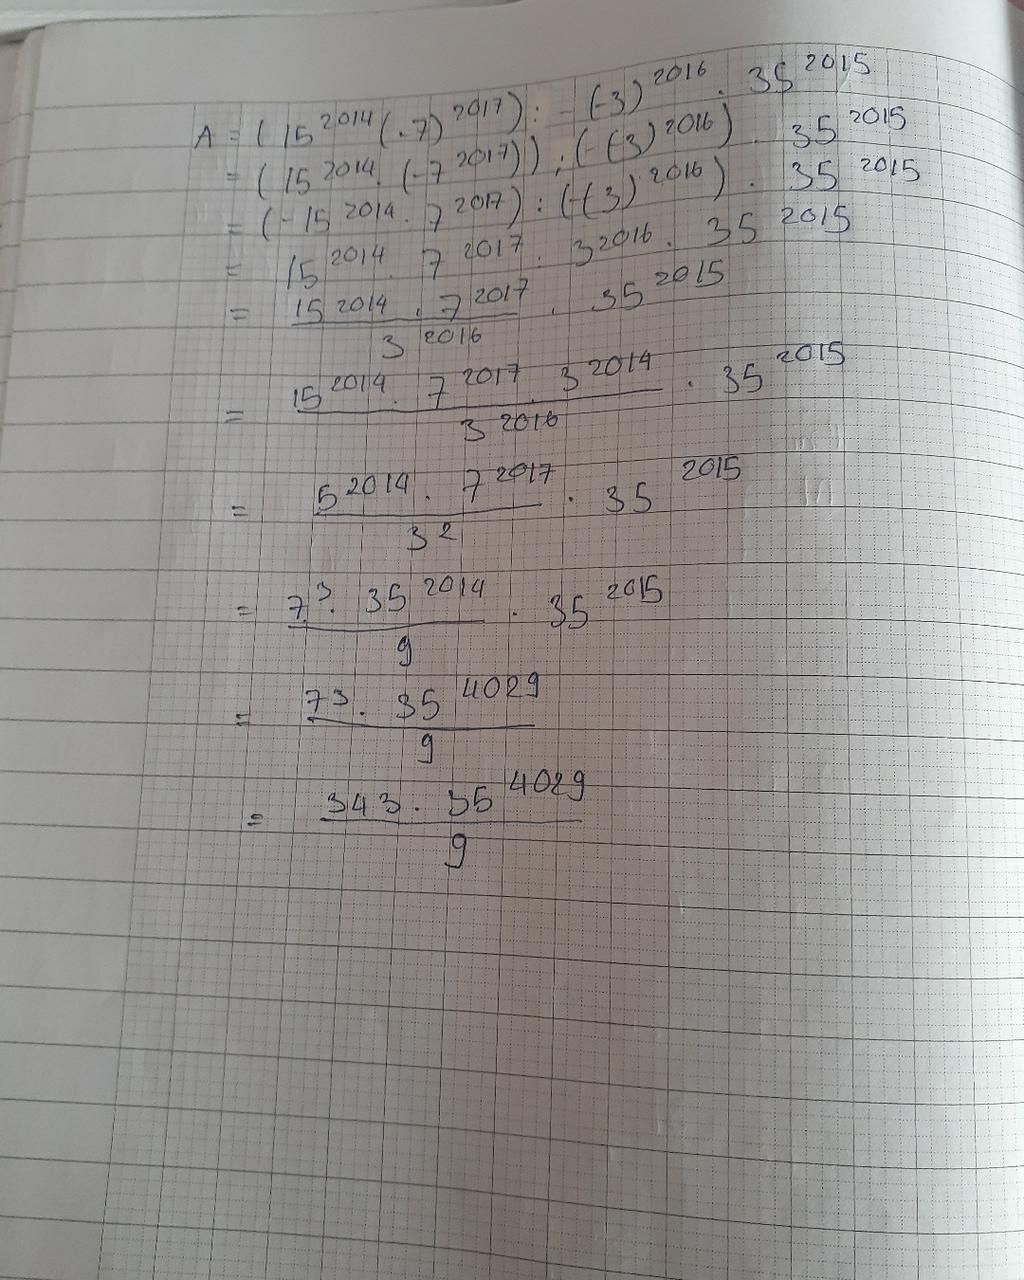 A = (15^2014 (.7)^2017) : - (-3)^2016 . 35^2015
= (15^2014 . (-7^2017)) : (-(3)^2016) . 35^2015
= (-15^2014 . 7^2017) : (-(3)^2016) . 35^2015
= 15^2014 . 7^2017 . 3^2016 . 35^2015
= 15^2014 . 7^2017 / 3^2016 . 35^2015
= 15^2014 . 7^2017 . 3^2014 / 3^2016 . 35^2015
= 5^2014 . 7^2017 / 3^2 . 35^2015
= 7^3 . 35^2014 / 9 . 35^2015
= 7^3 . 35^4029 / 9
= 343 . 35^4029 / 9